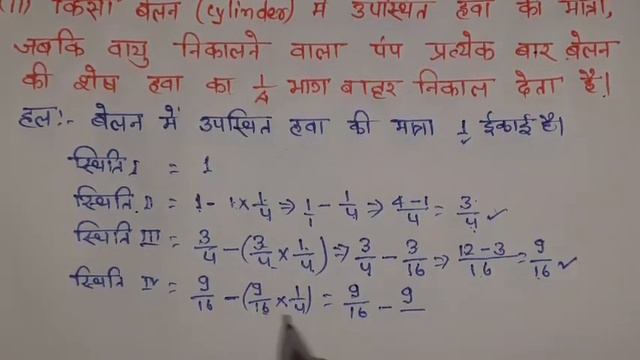 (ii) किसी बेलन (cylinder) में उपस्थित हवा की मात्रा,
जबकि वायु निकालने वाला पंप प्रत्येक बार बेलन
की शेष हवा का 1/4 भाग बाहर निकाल देता है।
हल:- बेलन में उपस्थित हवा की मात्रा 1 ईकाई है।
स्थिति I = 1
स्थिति II = 1 - 1 × 1/4 ⇒ 1/1 - 1/4 ⇒ (4-1)/4 = 3/4 ✓
स्थिति III = 3/4 - (3/4 × 1/4) ⇒ 3/4 - 3/16 ⇒ (12-3)/16 = 9/16 ✓
स्थिति IV = 9/16 - (9/16 × 1/4) = 9/16 - 9/